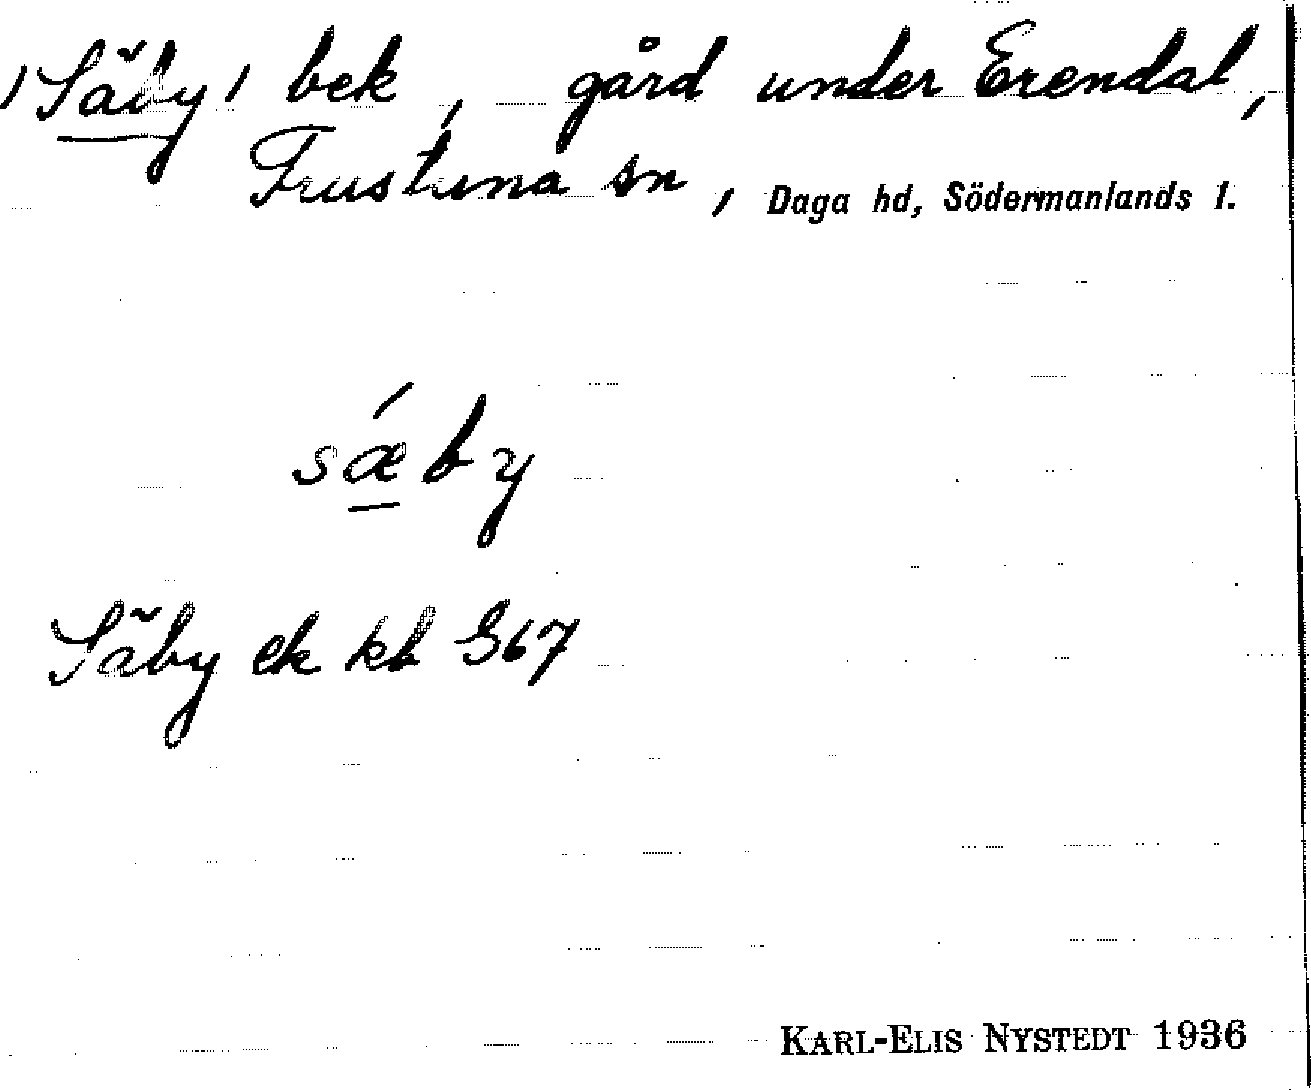 /Säby/ bek, gård under Erendal,
Frustuna sn, Daga hd, Södermanlands l.
sǽby
Säby ek kb S67
KARL-ELIS NYSTEDT 1936